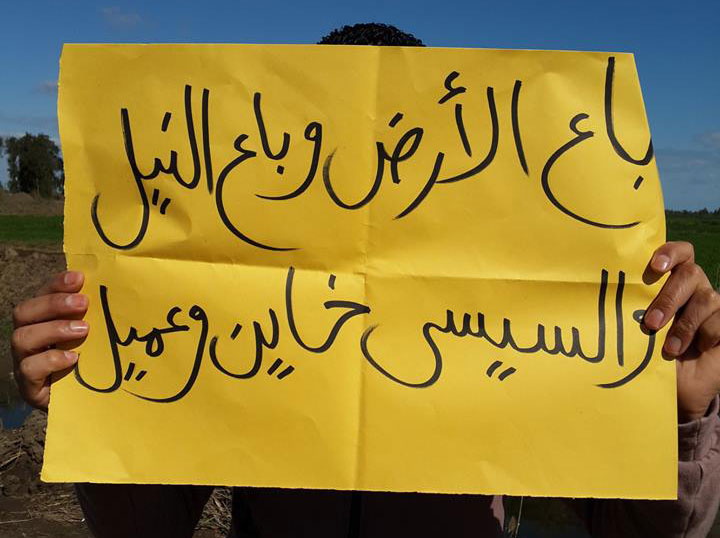 باع الأرض وباع النيل
والسيسى خاين وعميل